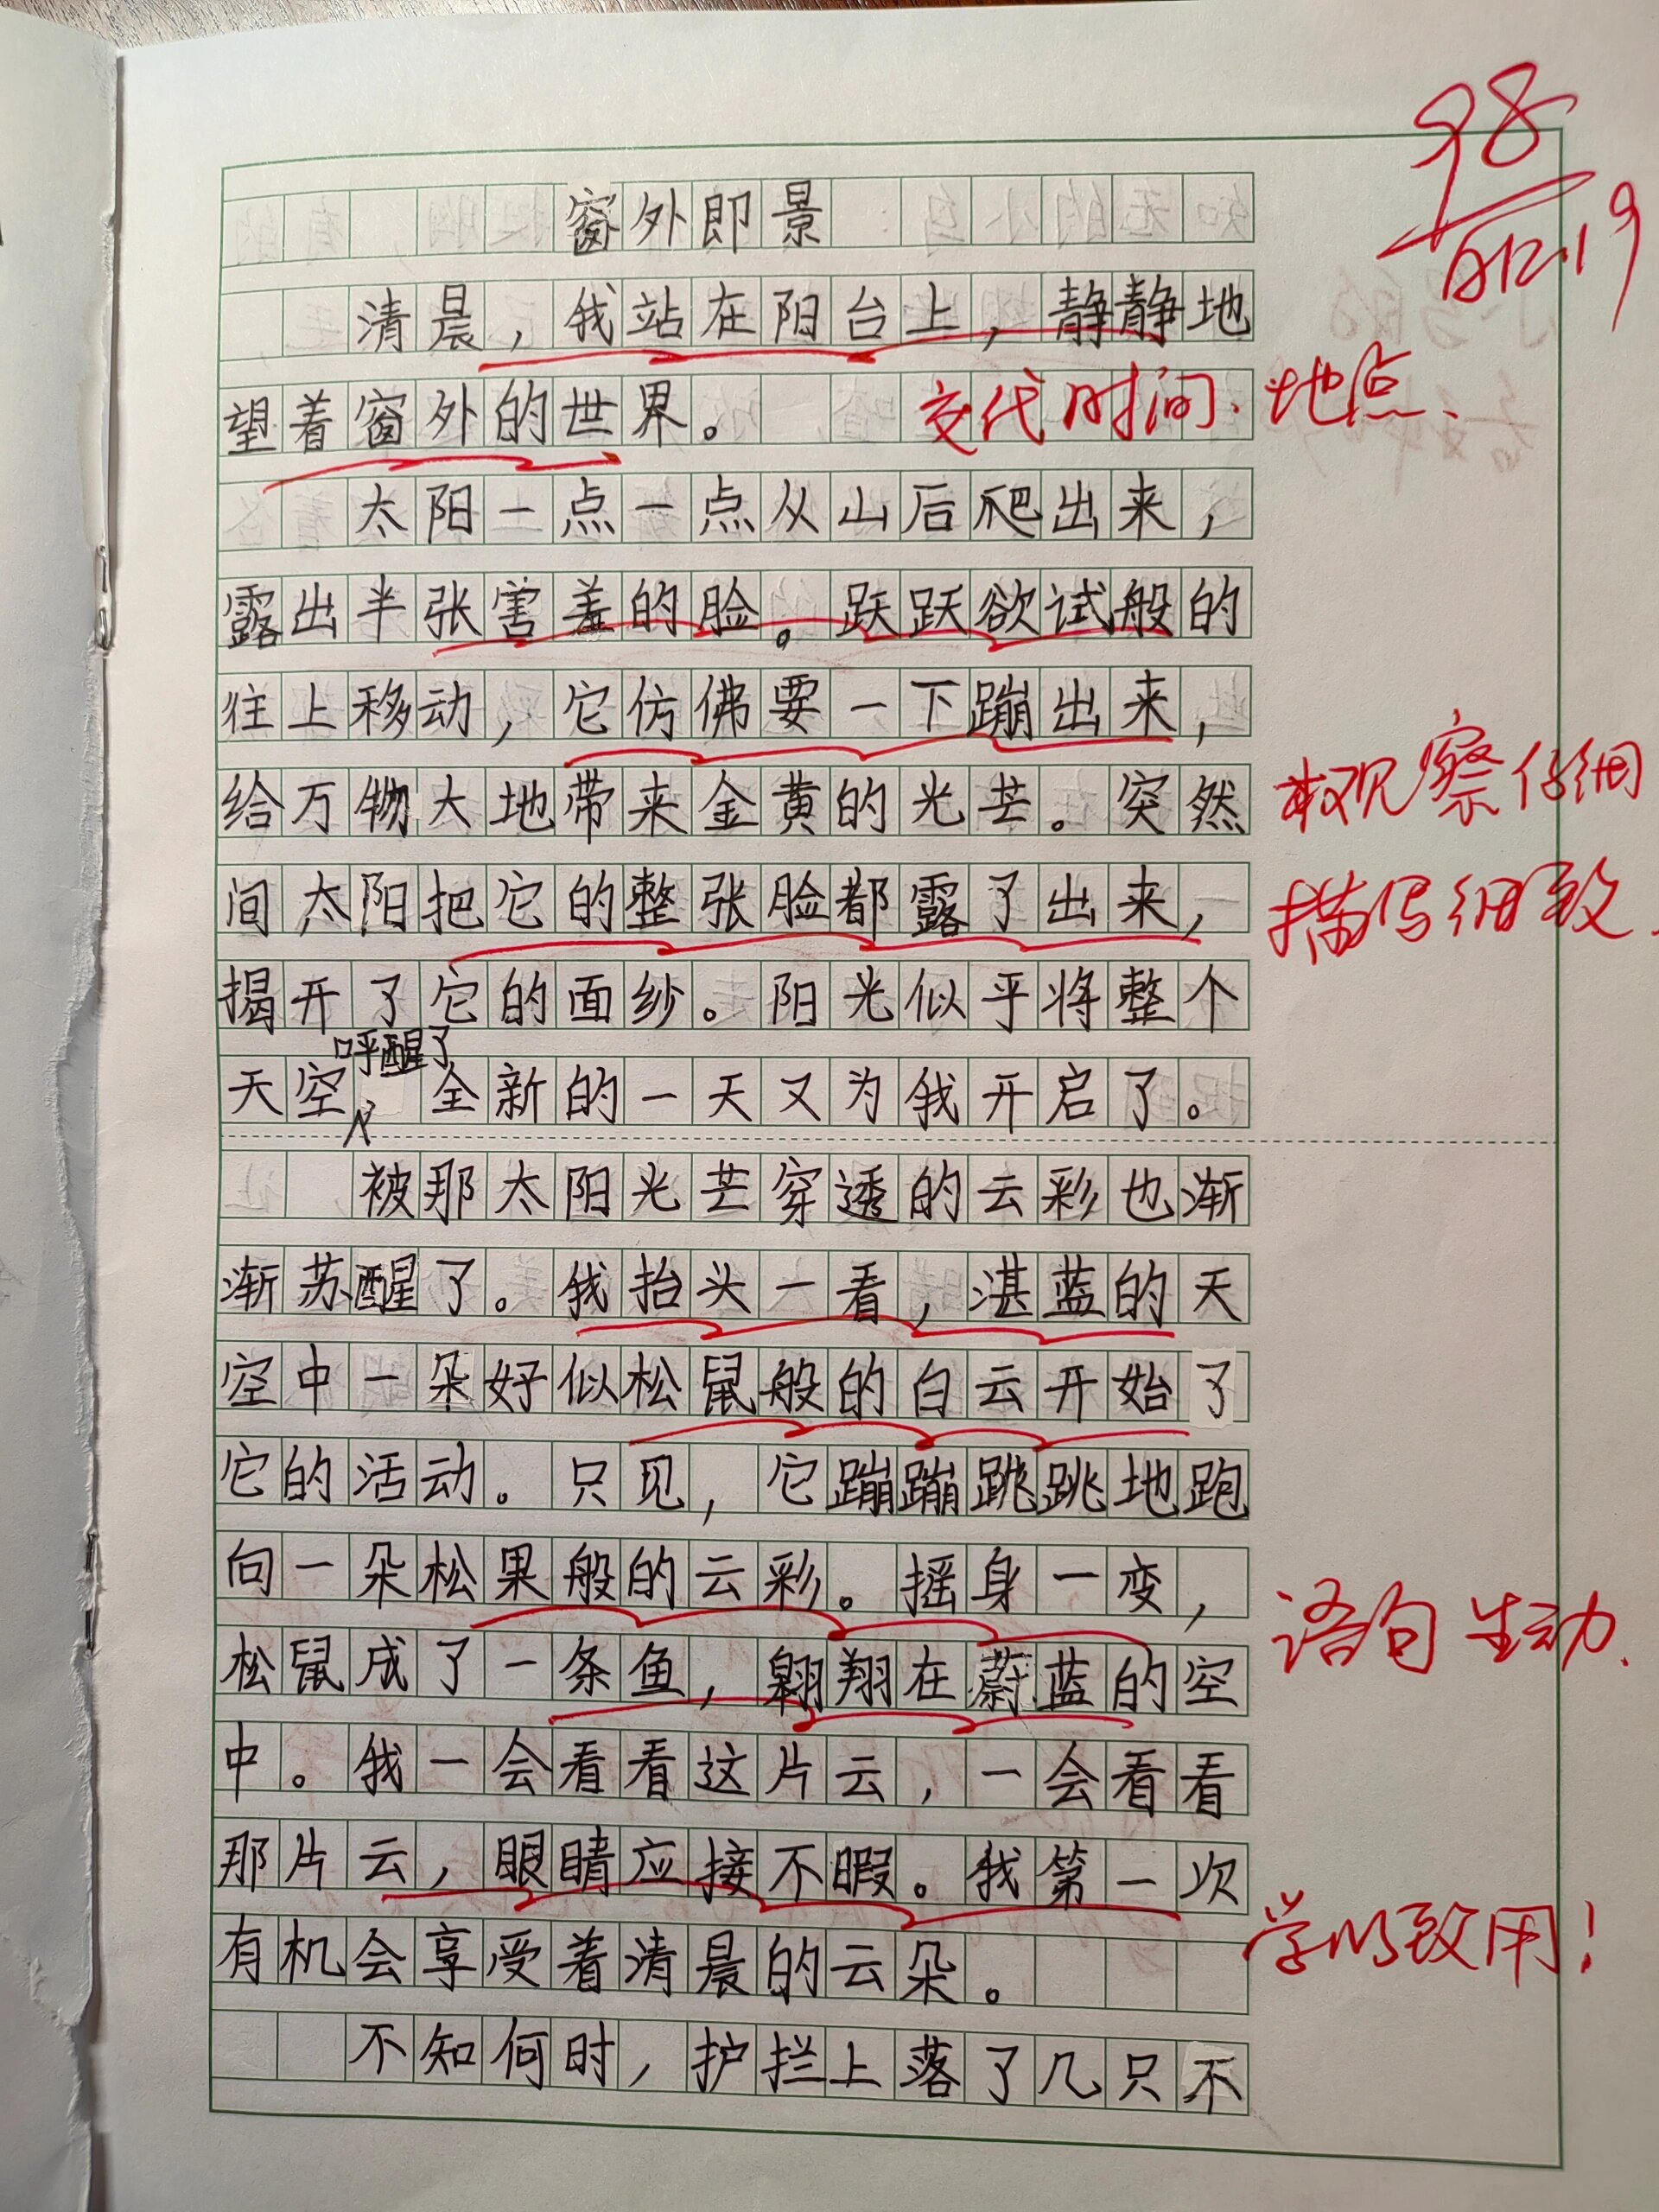 98
12.19
窗外即景
清晨，我站在阳台上，静静地
望着窗外的世界。
交代时间、地点、
太阳一点一点从山后爬出来，
露出半张害羞的脸。跃跃欲试般的
往上移动，它仿佛要一下蹦出来，
给万物大地带来金黄的光芒。突然
观察仔细
间太阳把它的整张脸都露了出来，
描写细致、
揭开了它的面纱。阳光似乎将整个
呼醒了
天空，全新的一天又为我开启了。
被那太阳光芒穿透的云彩也渐
渐苏醒了。我抬头一看，湛蓝的天
空中一朵好似松鼠般的白云开始了
它的活动。只见，它蹦蹦跳跳地跑
向一朵松果般的云彩。摇身一变，
语句生动、
松鼠成了一条鱼，翱翔在蔚蓝的空
中。我一会看看这片云，一会看看
那片云，眼睛应接不暇。我第一次
学以致用！
有机会享受着清晨的云朵。
不知何时，护拦上落了几只不